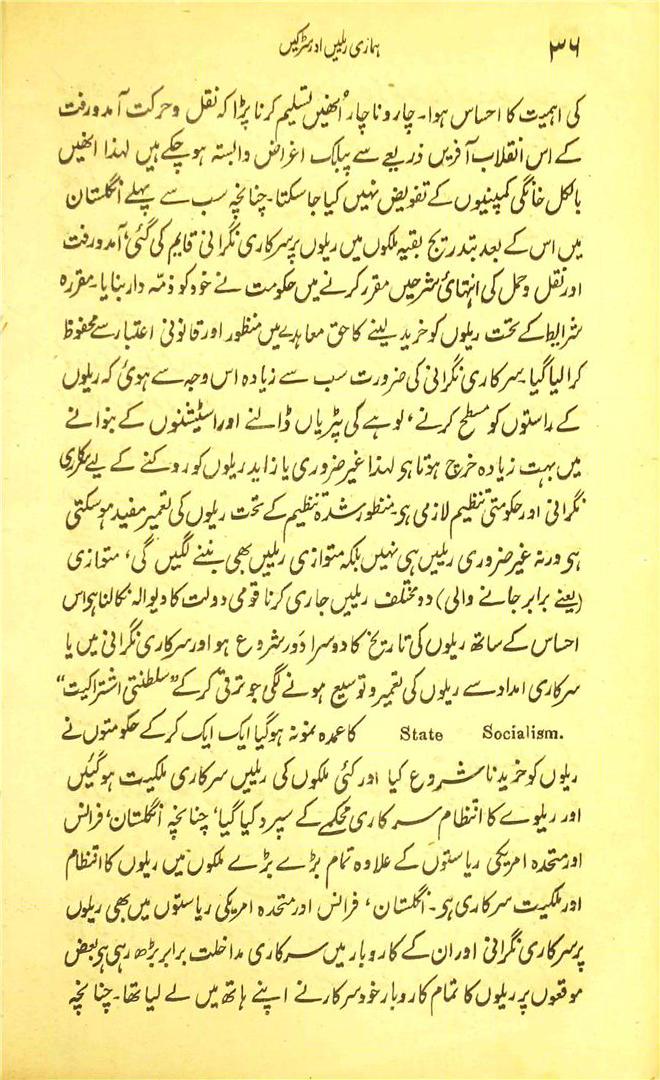 ۳۶
ہماری ریلیں اور سڑکیں
کی اہمیت کا احساس ہوا۔ چار و ناچار اُنھیں تسلیم کرنا پڑا کہ نقل وحرکت آمدورفت
کے اس انقلاب آفریں ذریعے سے پبلک اغراض وابستہ ہوچکے ہیں لہذا انھیں
بالکل خانگی کمپنیوں کے تفویض نہیں کیا جاسکتا۔ چنانچہ سب سے پہلے انگلستان
میں اس کے بعد بتدریج بقیہ ملکوں میں ریلوں پر سرکاری نگرانی قایم کی گئی، آمدورفت
اور نقل وحمل کی انتہائی شرحیں مقرر کرنے میں حکومت نے خود کو ذمّہ دار بنایا۔ مقررہ
شرایط کے تحت ریلوں کو خرید لینے کا حق معاہدے میں منظور اور قانونی اعتبار سے محفوظ
کرالیا گیا۔ سرکاری نگرانی کی ضرورت سب سے زیادہ اس وجہ سے ہوئی کہ ریلوں
کے راستوں کو مسطح کرنے، لوہے کی پٹریاں ڈالنے اور اسٹیشنوں کے بنوانے
میں بہت زیادہ خرچ ہوتا ہو لہذا غیر ضروری یا زاید ریلوں کو روکنے کے لیے سرکاری
نگرانی اور حکومتی تنظیم لازمی ہو۔ منظور شدہ تنظیم کے تحت ریلوں کی تعمیر مفید ہوسکتی
ہو ورنہ غیر ضروری ریلیں ہی نہیں بلکہ متوازی ریلیں بھی بننے لگیں گی، متوازی
(یعنے برابر جانے والی) دو مختلف ریلیں جاری کرنا قومی دولت کا دیوالہ نکالنا ہو اس
احساس کے ساتھ ریلوں کی تاریخ کا دوسرا دَور شروع ہو اور سرکاری نگرانی میں یا
سرکاری امداد سے ریلوں کی تعمیر و توسیع ہونے لگی جو ترقی کرکے "سلطنتی اشتراکیت"
State Socialism. کا عمدہ نمونہ ہوگیا ایک ایک کرکے حکومتوں نے
ریلوں کو خریدنا شروع کیا اور کئی ملکوں کی ریلیں سرکاری ملکیت ہوگئیں
اور ریلوے کا انتظام سرکاری محکمے کے سپرد کیا گیا، چنانچہ انگلستان، فرانس
اور متحدہ امریکی ریاستوں کے علاوہ تمام بڑے بڑے ملکوں میں ریلوں کا انتظام
اور ملکیت سرکاری ہو۔ انگلستان، فرانس اور متحدہ امریکی ریاستوں میں بھی ریلوں
پر سرکاری نگرانی اور ان کے کاروبار میں سرکاری مداخلت برابر بڑھ رہی ہو بعض
موقعوں پر ریلوں کا تمام کاروبار خود سرکار نے اپنے ہاتھ میں لے لیا تھا۔ چنانچہ